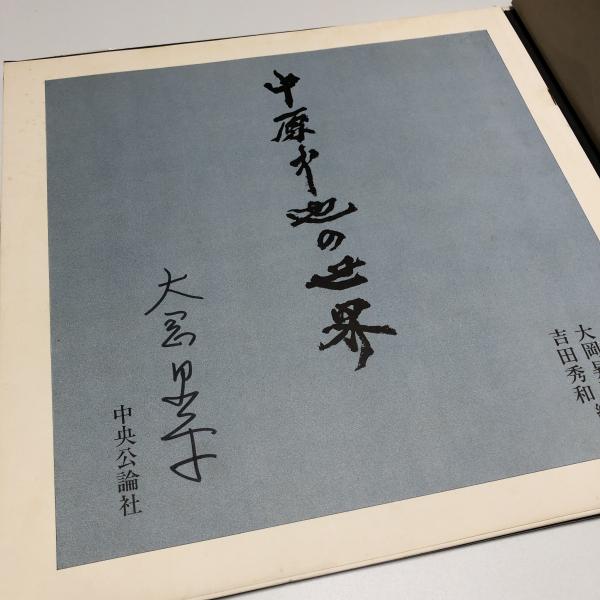 大岡昇平 編
吉田秀和
中原中也の世界
大岡昇平
中央公論社